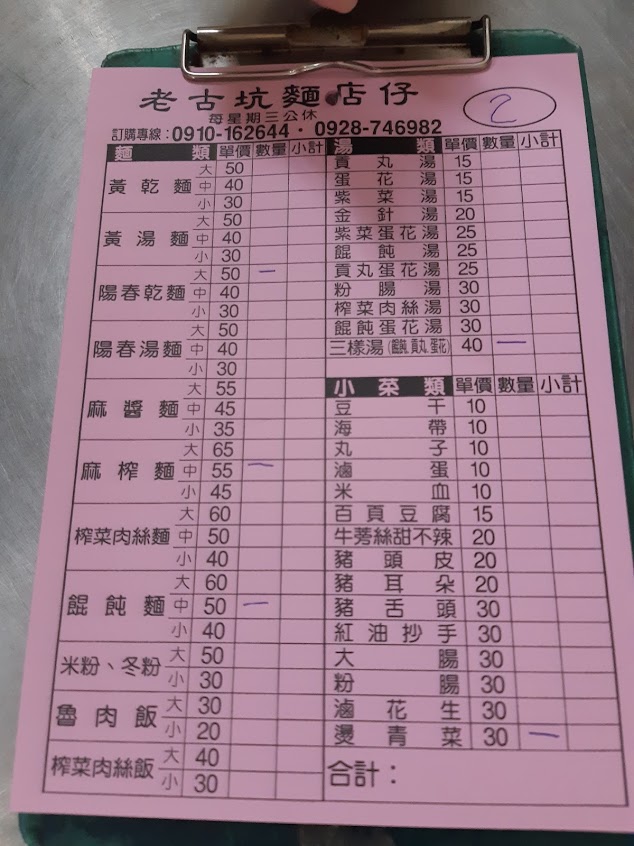 老古坑麵店仔
每星期三公休
2
訂購專線：0910-162644・0928-746982
麵類 單價 數量 小計
黃乾麵 大 50
中 40
小 30
黃湯麵 大 50
中 40
小 30
陽春乾麵 大 50 一
中 40
小 30
陽春湯麵 大 50
中 40
小 30
麻醬麵 大 55
中 45
小 35
麻榨麵 大 65
中 55 一
小 45
榨菜肉絲麵 大 60
中 50
小 40
餛飩麵 大 60
中 50 一
小 40
米粉、冬粉 大 50
小 30
魯肉飯 大 30
小 20
榨菜肉絲飯 大 40
小 30
湯類 單價 數量 小計
貢丸湯 15
蛋花湯 15
紫菜湯 15
金針湯 20
紫菜蛋花湯 25
餛飩湯 25
貢丸蛋花湯 25
粉腸湯 30
榨菜肉絲湯 30
餛飩蛋花湯 30
三樣湯(餛飩、貢丸、蛋花) 40 一
小菜類 單價 數量 小計
豆干 10
海帶 10
丸子 10
滷蛋 10
米血 10
百頁豆腐 15
牛蒡絲甜不辣 20
豬頭皮 20
豬耳朵 20
豬舌頭 30
紅油抄手 30
大腸 30
粉腸 30
滷花生 30
燙青菜 30 一
合計：